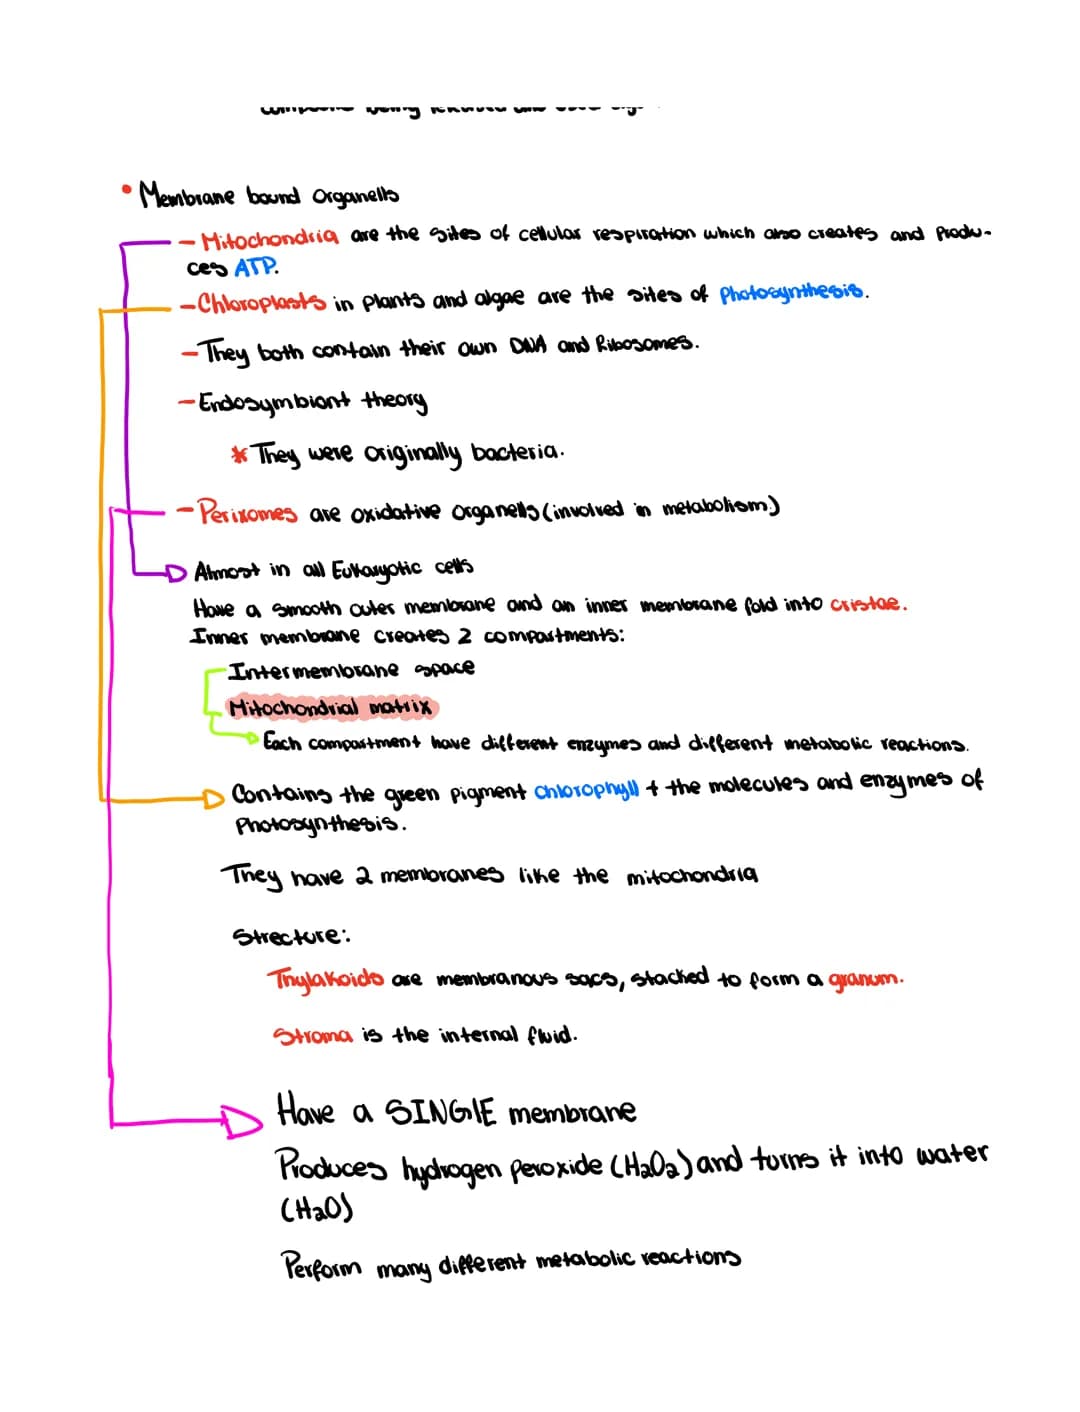 • Membrane bound Organells
- Mitochondria are the sites of cellular respiration which also creates and produ-
ces ATP.
- Chloroplasts in plants and algae are the sites of Photosynthesis.
- They both contain their own DNA and Ribosomes.
- Endosymbiont theory
* They were originally bacteria.
- Perixomes are oxidative organells (involved in metabolism)
Almost in all Eukaryotic cells
Have a smooth outer membrane and an inner membrane fold into cristae.
Inner membrane creates 2 compartments:
Intermembrane space
Mitochondrial matrix
Each compartment have different enzymes and different metabolic reactions.
Contains the green pigment chlorophyll + the molecules and enzymes of
Photosynthesis.
They have 2 membranes like the mitochondria
Strecture:
Thylakoids are membranous sacs, stacked to form a granum.
Stroma is the internal fluid.
Have a SINGlE membrane
Produces hydrogen peroxide (H2O2) and turns it into water
(H2O)
Perform many different metabolic reactions